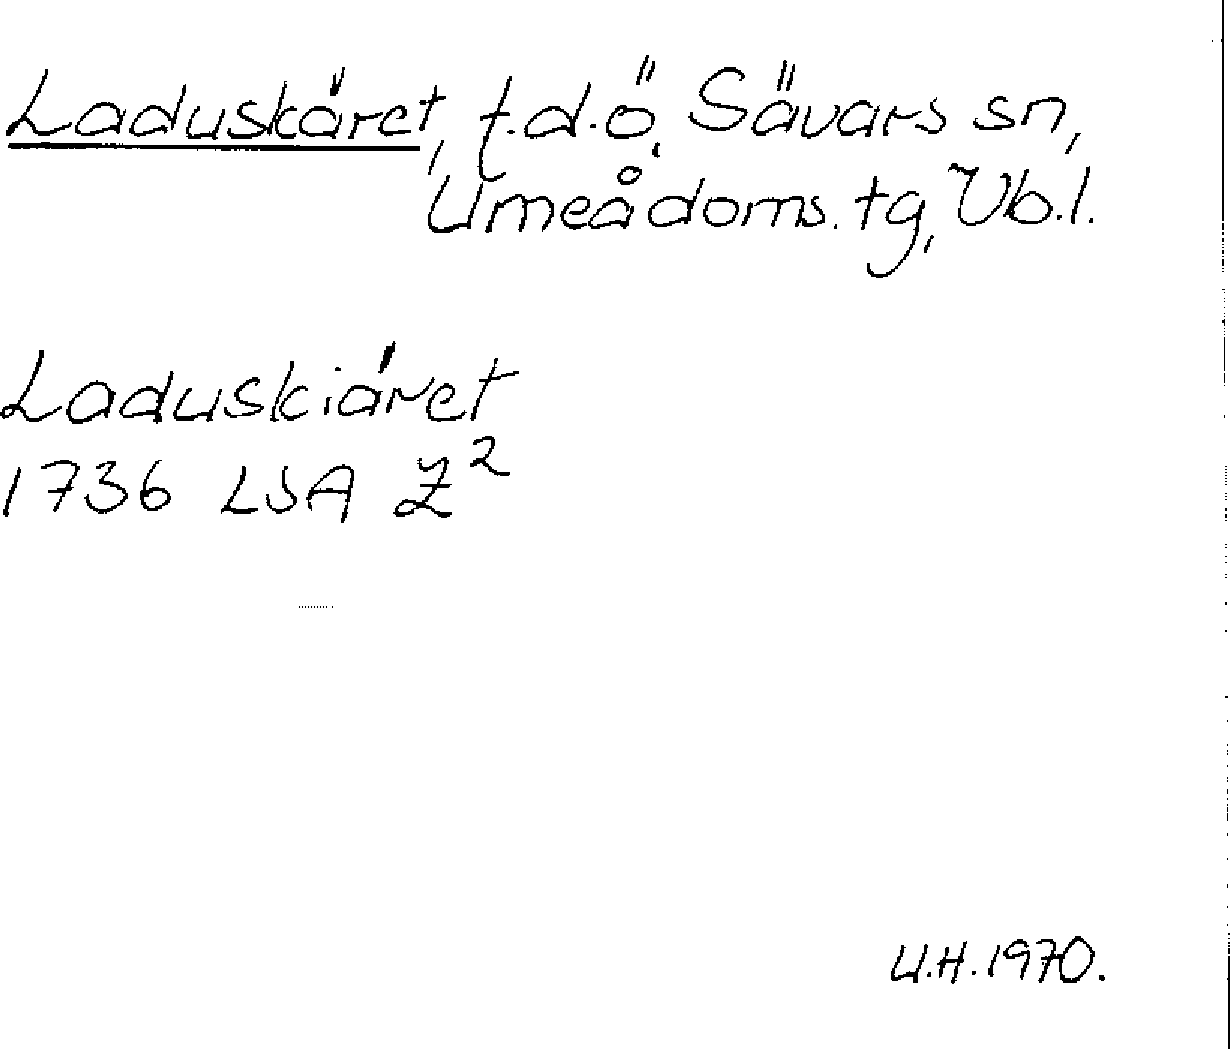 Laduskäret, f.d.ö, Sävars sn,
Umeå doms. tg, Vb.l.
Laduskiäret
1736 LSA Z²
U.H. 1970.